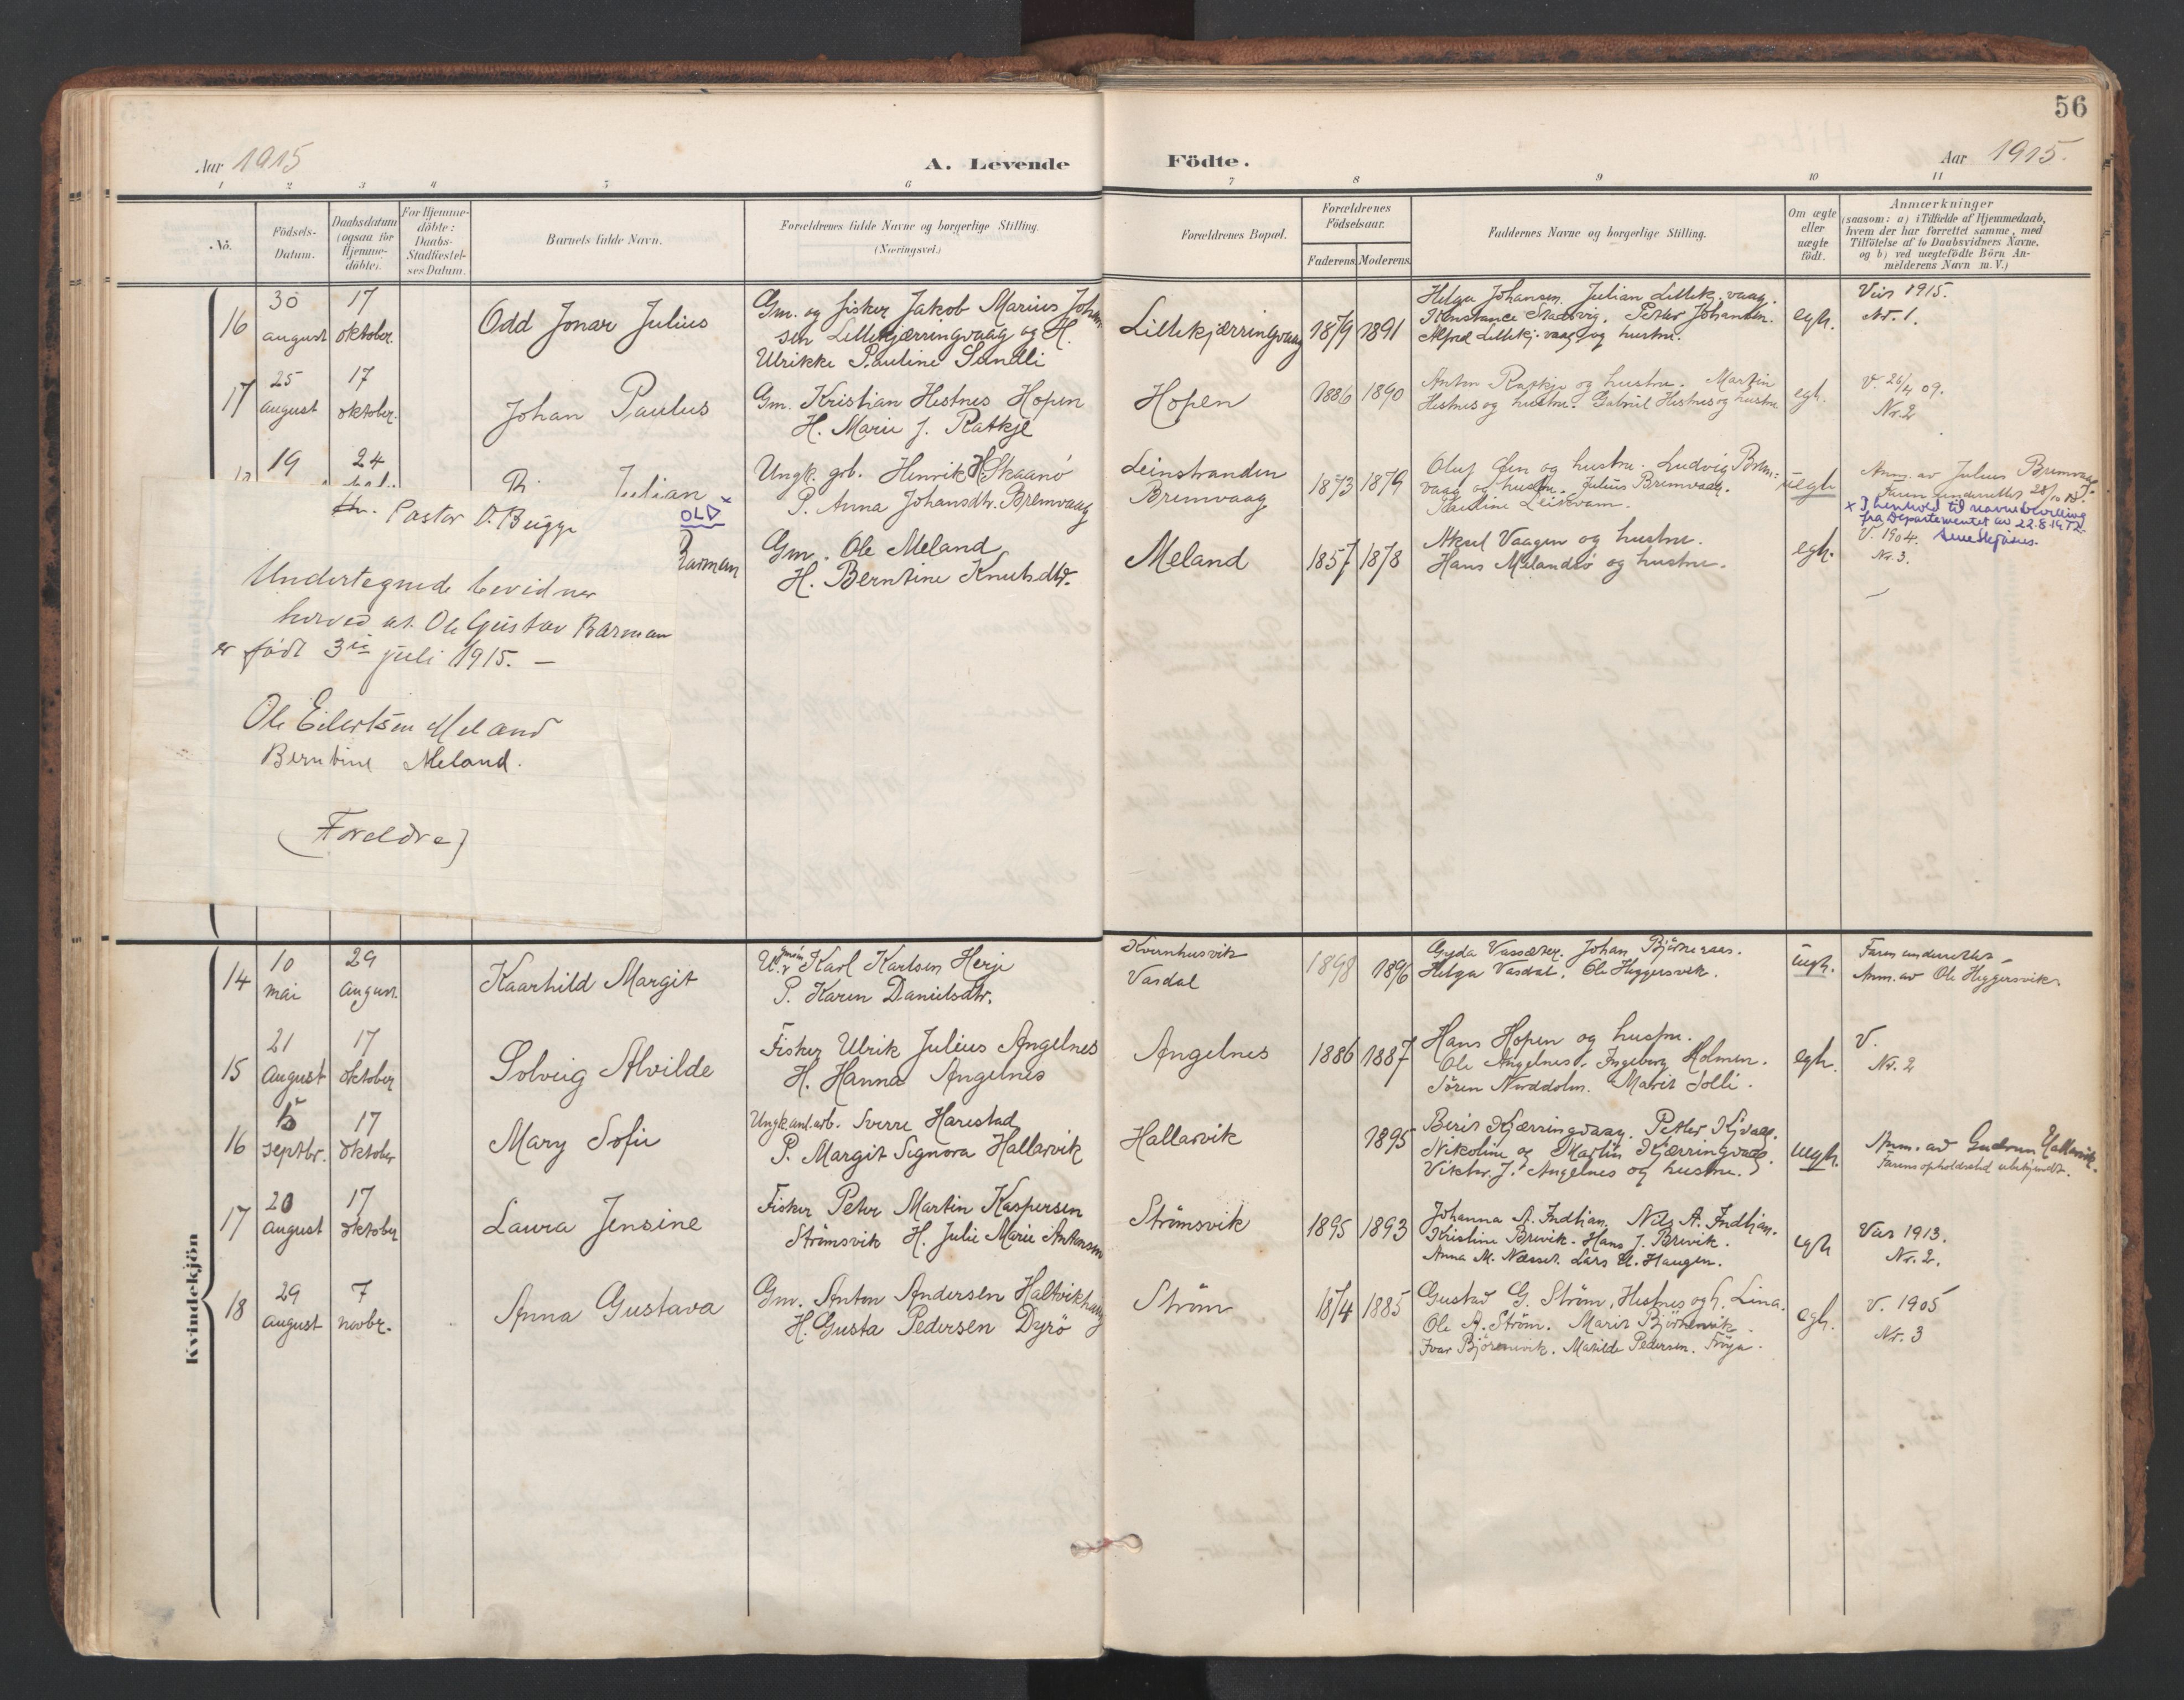 56
Aar 1915
A. Levende
Födte.
Aar 1915.
1 2 3 4 5 6 7 8 9 10 11
No.
Födsels-
Datum.
Daabsdatum
(ogsaa for
Hjemme-
döbte).
For Hjemme-
döbte:
Daabs-
Stadfæstel-
ses Datum.
Barnets fulde Navn.
Forældrenes fulde Navne og borgerlige Stilling.
(Næringsvei.)
Forældrenes Bopæl.
Forældrenes
Födselsaar.
Faderens. Moderens.
Faddernes Navne og borgerlige Stilling.
Om ægte
eller
uægte
födt.
Anmærkninger
(saasom: a) i Tilfælde af Hjemmedaab,
hvem der har forrettet samme, med
Tilföielse af to Daabsvidners Navne,
og b) ved uægtefödte Börn An-
melderens Navn m. V.)
16
30
august
17
oktober.
Odd Jonar Julius
Gm. og fisker Jakob Marius Johan-
sen Lillekjærringvaag og H.
Ulrikke Pauline Sundli
Lillekjærringvaag
1879
1891
Helga Johansen. Julian Lillekj.vaag.
Konstance Stadsvig. Petter Johansen.
Alfred Lillekj.vaag og hustru.
egh.
Veis 1915.
Nr. 1.
17
25
august
17
oktober.
Johan Paulus
Gm. Kristian Hestnes Hopen
H. Marie J. Ratkje
Hopen
1886
1890
Anton Ratkje og hustru. Martin
Hestnes og hustru. Gabriel Hestnes og hustru
egh.
V. 26/4 09.
Nr. 2
19
24
Julian
OLD
Ungk. grb. Henrik H. Skaanö
P. Anna Johansdtr. Bremvaag
Leinstranden
Bremvaag
1873
1879
Oluf Öen og hustru. Ludvig Brem-
vaag og hustru. Julius Bremvaag.
Pauline Leistvam.
uegh
Anm. av Julius Bremvaag
Faren underrettet 28/10 15.
x I henhold til navnebevilling
fra Departementet av 22.8.1972.
Barman
Gm. Ole Meland
H. Berntine Knutsdtr.
Meland
1857
1878
Aksel Vaagen og hustru.
Hans Melandsö og hustru.
egh.
V. 1904.
Nr. 3.
Hr. Pastor D. Bugge
Undertegnede bevidner
herved at Ole Gustav Barman
er född 3die juli 1915. —
Ole Eilertsen Meland
Berntine Meland.
(Foreldre)
Kvindekjön
14
10
mai
29
august.
Kaarhild Margit
Karl Karlsen Herje
P. Karen Danielsdtr.
Kvernhusvik
Vasdal
1898
1896
Gyda Vassæter. Johan Björneraas.
Helga Vasdal. Ole Heggersvik.
uegh.
Faren underrettet –
Anm. av Ole Heggersvik.
15
21
August
17
Oktober
Solveig Alvilde
Fisker Ulrik Julius Angelnes
H. Hanna Angelnes
Angelnes
1886
1887
Hans Hopen og hustru.
Ole Angelnes. Ingeborg Holmen.
Sören Norddolm. Marit Solli.
egh.
V.
Nr. 2
16
septbr.
17
Oktober
Mary Sofie
Ungk. anl.arb. Sverre Harestad
P. Margit Signora Hallarvik
Hallarvik
1895
Berit Kjærringvaag. Petter Kjvaag.
Nikoline og Martin Kjærringvaag.
Viktor J. Angelnes og hustru.
uegh.
Anm. av Gudrun Hallarvik.
Farens opholdssted ubekjendt.
17
20
August
17
Oktober
Laura Jensine
Fisker Peter Martin Kaspersen
Strömsvik H. Julie Marie Antonsen
Strömsvik
1895
1893
Johanna A. Indtjan. Nils A. Indtjan.
Kristine Brevik. Hans J. Brevik.
Anna M. Næsset. Lars A. Haugen.
egh
Veis 1913.
Nr. 2.
18
29
August
7
novbr.
Anna Gustava
Gm. Anton Andersen Haltvikhaug
H. Gusta Pedersen Dyrö
Ström
1874
1885
Gustav G. Ström, Hestnes og h. Lina.
Ole A. Ström. Marit Björnenvik.
Ivar Björnenvik. Matilde Pedersen. Fröya.
egh.
V. 1905
Nr. 3